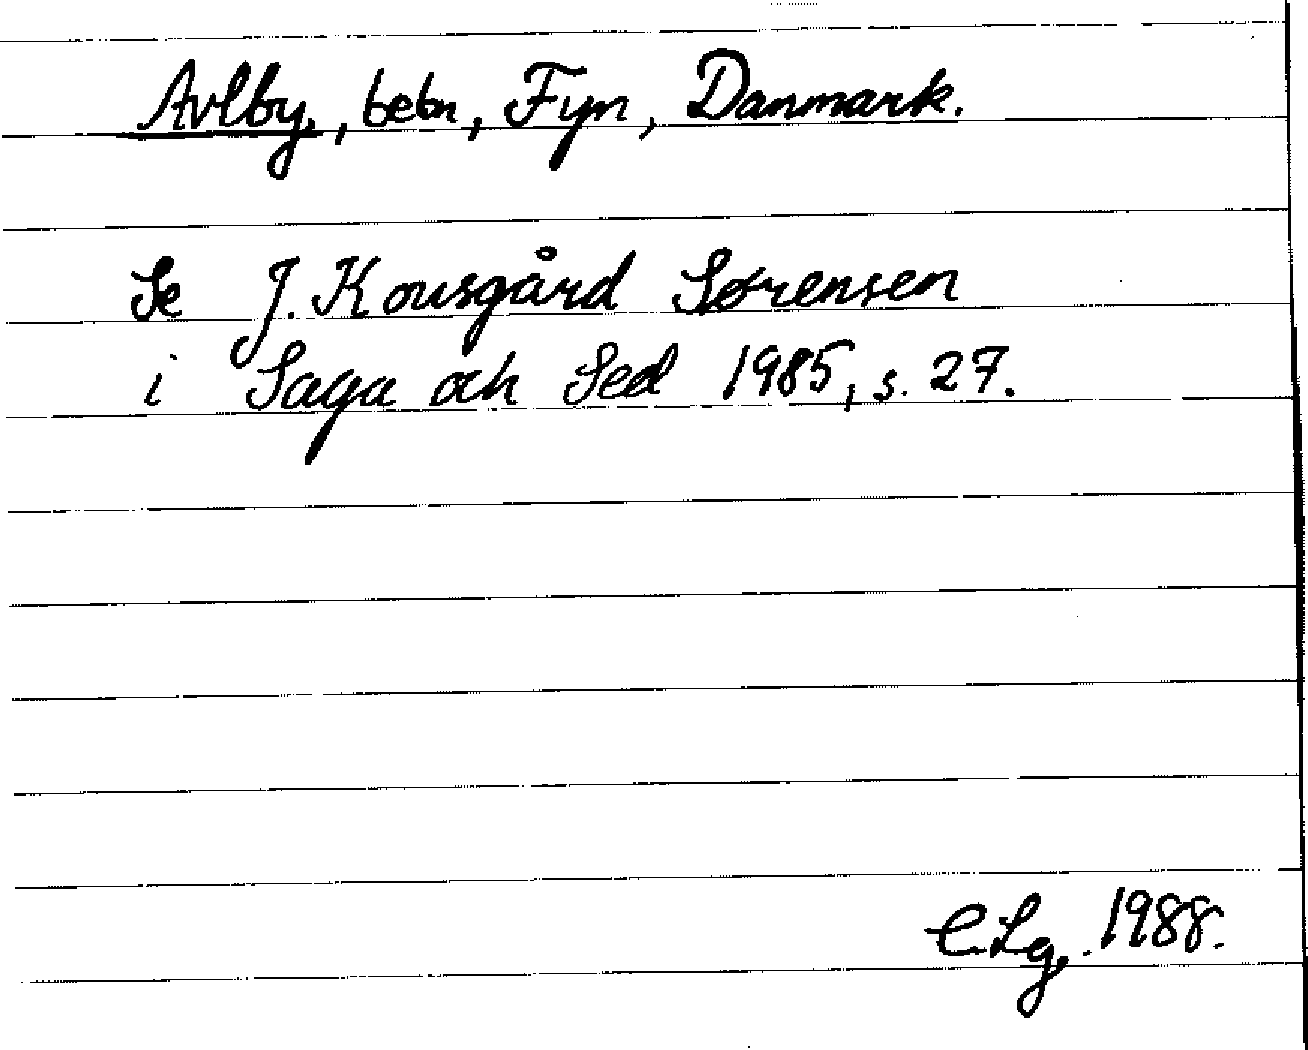 Avlby, , bebn, Fyn, Danmark.
Se J. Kousgård Sørensen
i Saga och Sed 1985, s. 27.
C.Lg. 1988.